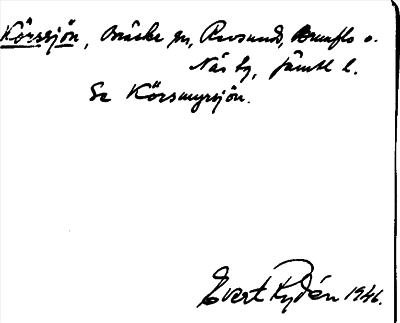 Körssjön, Bräcke sn, Revsunds, Brunflo o.
Näs tg, Jämtl l.
Se Körsmyrsjön.
Evert Rydén 1946.